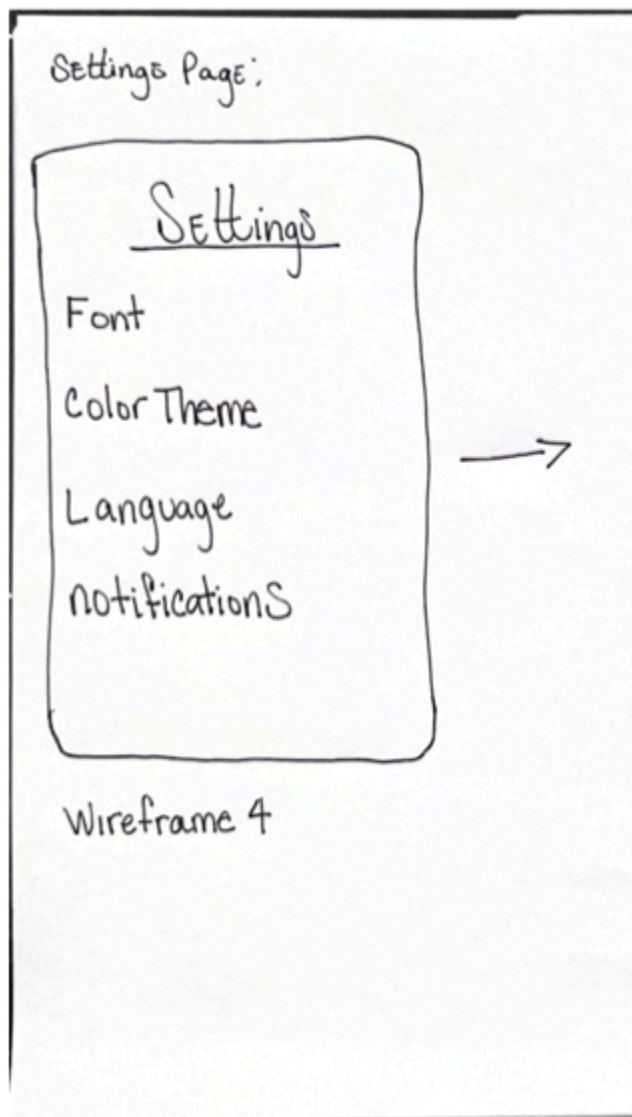 Settings Page:
Settings
Font
Color Theme
Language
notifications
Wireframe 4